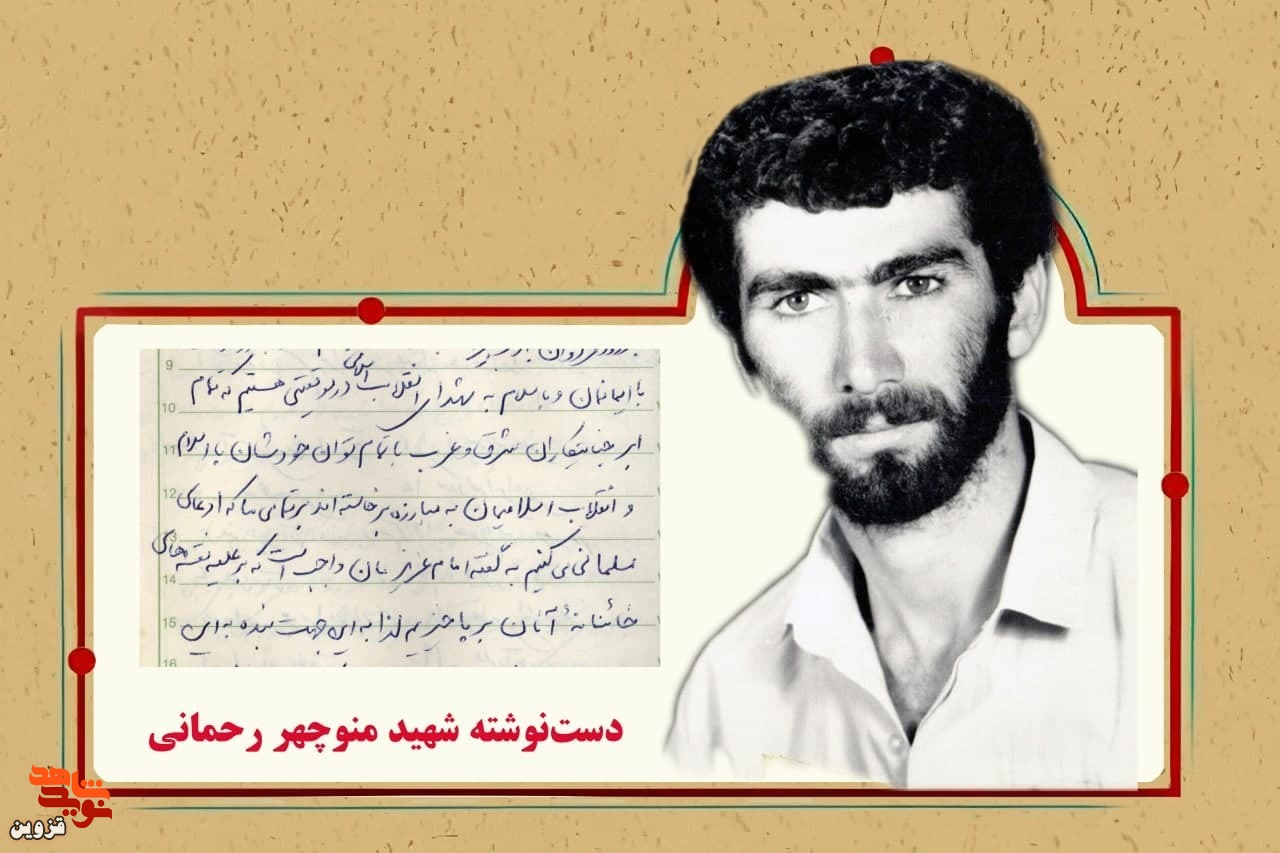 9
با ایمانمان و با سلام به شهدای انقلاب اسلامی در موقعیتی هستیم که تمام
10
ابر جنایتکاران شرق و غرب با تمام توان خودشان با اسلام
11
و انقلاب اسلامیمان به مبارزه برخاسته‌اند بر تمامی ما که ادعای
12
مسلمانی می‌کنیم به گفته امام عزیزمان واجب است که بر علیه نقشه‌های
14
خائنانهٔ آنان بر پا خیزیم لذا به این جهت بنده به این
15
16
دست‌نوشته شهید منوچهر رحمانی
نوید شاهد
قزوین